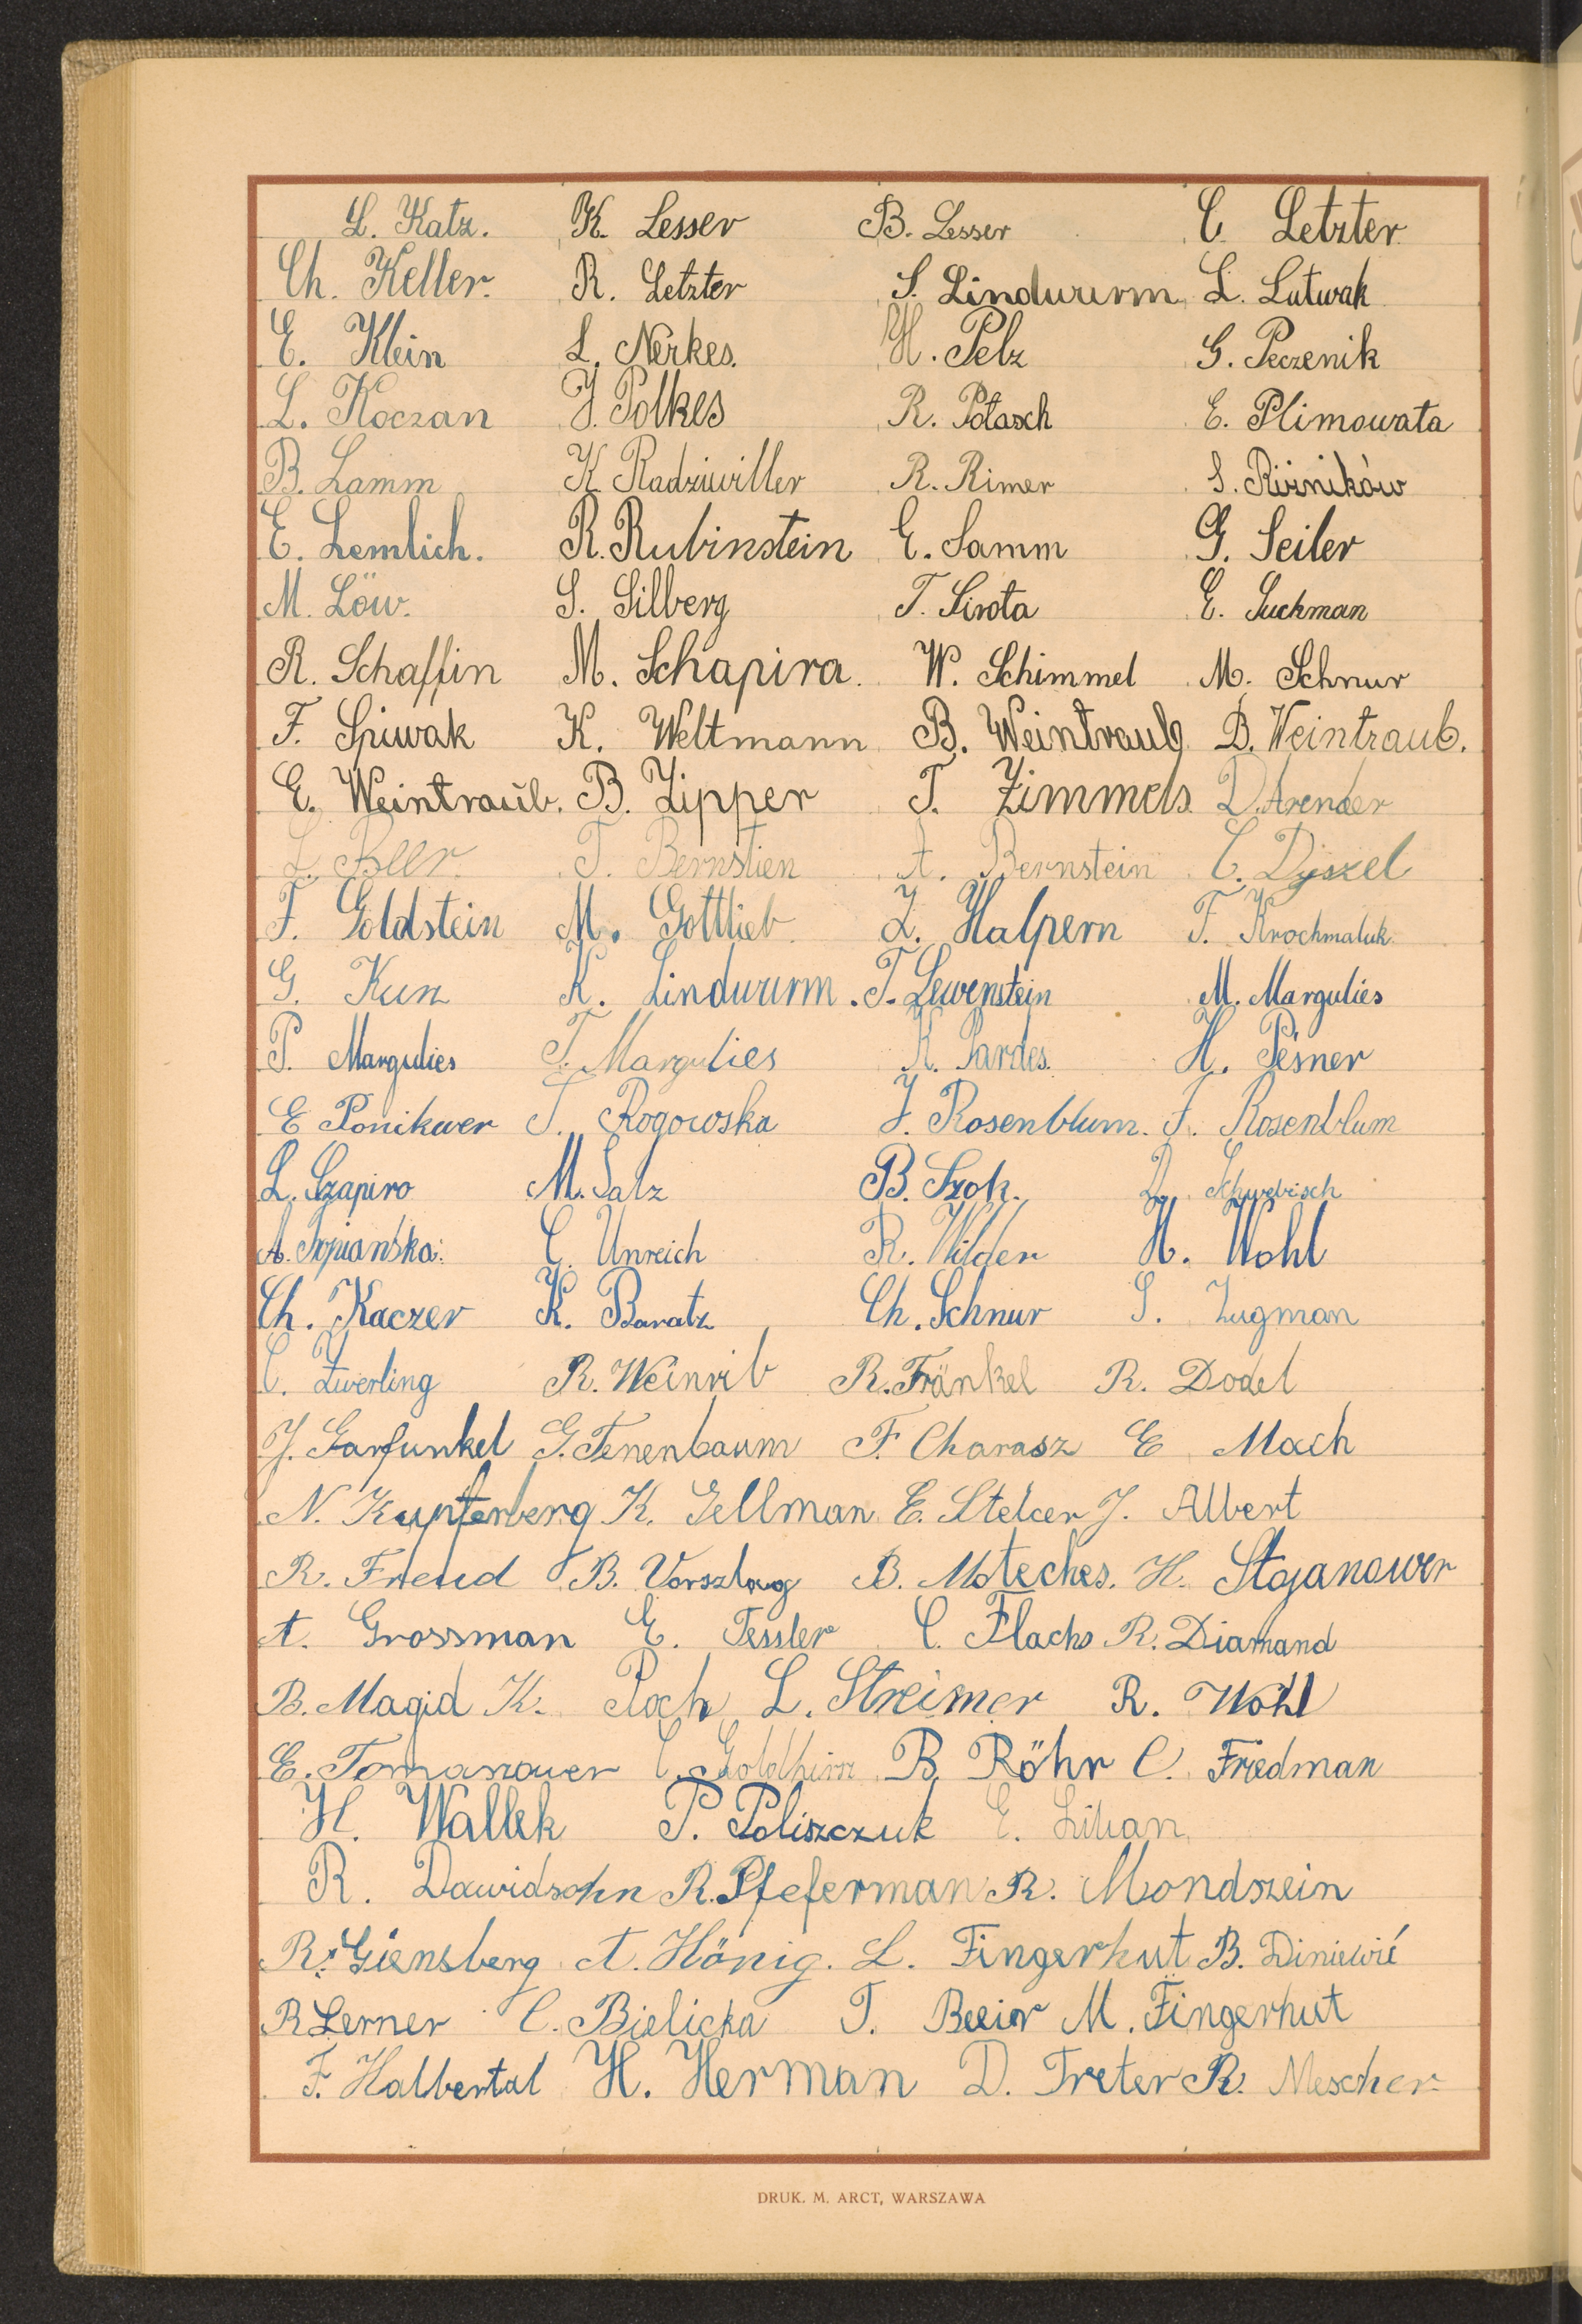 L. Katz. K. Lesser B. Lesser C. Letzter
Ch. Keller. R. Letzter S. Lindwurm L. Lutwak
E. Klein L. Nerkes. H. Pelz G. Peczenik
L. Koczan J. Polkes R. Potasch E. Plimowata
B. Lamm K. Radziwiller R. Rimer S. Różników
E. Lemlich. R. Rubinstein E. Samm G. Seiler
M. Löw. S. Silberg T. Sirota E. Suckman
R. Schaffin M. Schapira. W. Schimmel M. Schnur
F. Spiwak K. Weltmann B. Weintraub D. Weintraub.
E. Weintraub. B. Zipper T. Zimmels D. Arender
L. Beer. T. Bernstien A. Bernstein C. Dyszel
F. Goldstein M. Gottlieb Z. Halpern F. Krochmaluk
G. Kunz K. Lindwurm. T. Lewenstein M. Margulies
P. Margulies T. Margulies R. Pardes. H. Pesner
E Ponikwer T. Rogowska J. Rosenblum. F. Rosenblum
L. Szapiro M. Salz B. Szok. D. Schwebisch
A. Topiańska. C. Unreich R. Wilder H. Wohl
Ch. Kaczer K. Baratz Ch. Schnur S. Zugman
C. Zwerling R. Weinrib R. Fränkel R. Dodel
J. Garfunkel G. Tenenbaum F. Charasz E Mach
N. Kupferberg K. Gellman E. Stelcer J. Albert
R. Freud B. Vorszlag B. Moteches. H. Stojanower
A. Grossman E. Tessler C. Flachs R. Diamand
B. Magid K. Poch L. Streimer R. Wohl
E. Tomaszower C. Goldhirn B. Röhr C. Friedman
H. Wallek P. Poliszczuk E. Lilian
R. Dawidsohn R. Pfeferman R. Mondszein
R. Giensberg A. Hönig. L. Fingerhut B. Diniewić
R Lerner C. Bielicka T. M. Fingerhut
F. Halbertal H. Herman D. Treter R. Mescher
DRUK. M. ARCT, WARSZAWA